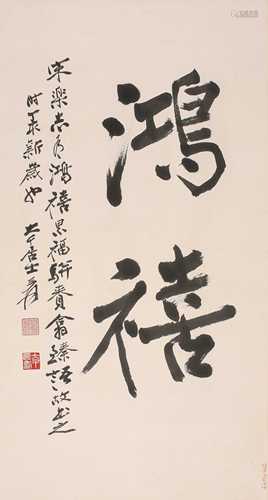 鴻禧
宋樂志有鴻禧累福駢賚翕臻語故書之
時辛亥新歲也 大千居士爰